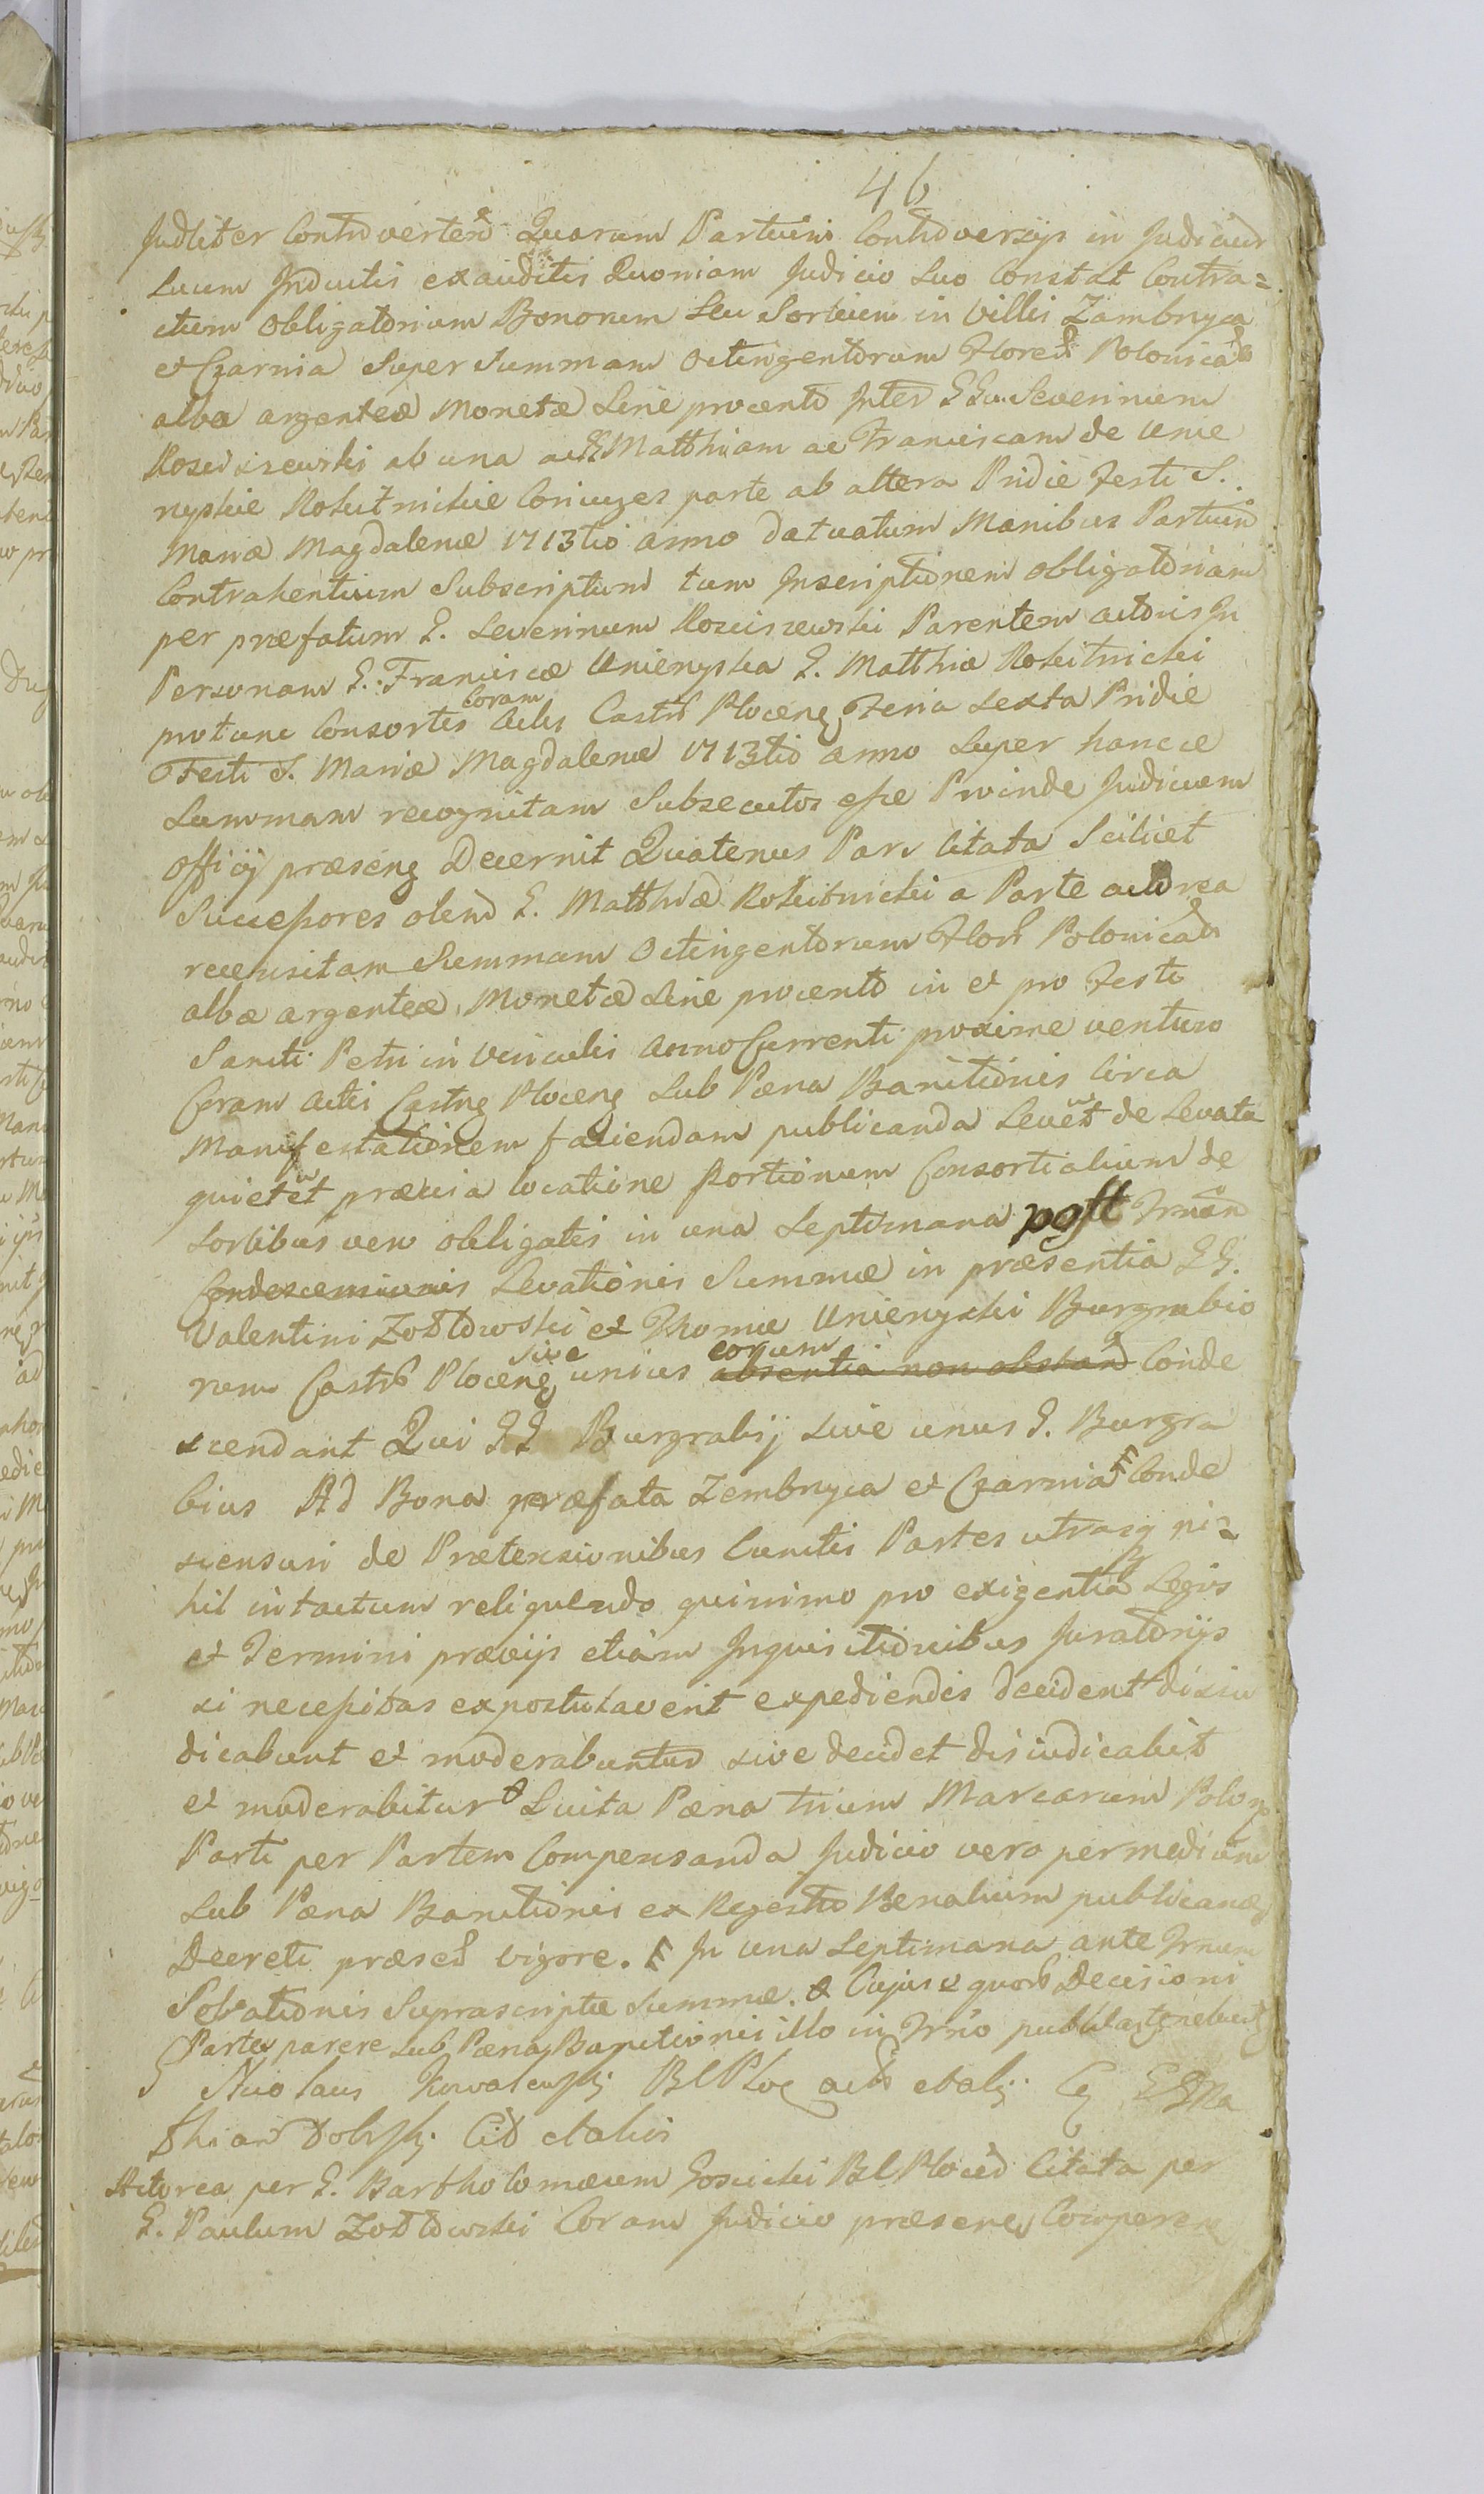 46
Judliter Controverten Quarum Partium Controversijs in Judicium
Suum Inductis exauditis Quoniam Judicio Suo Constat Contra=
ctum Obligatorium Bonorum Seu Sortium in Villis Zambrzyca
et Czarnia Super Summam Octingentorum Floren Polonical
alba argentea Moneta Sine procento Inter GG. Severinum
Kosciszewski ab una ac GG Matthiam ac Franciscam de Unie
ryskie Rokitnickie Coniuges parte ab altera Pridie Festi S.
Mariæ Magdalenæ 1713tio anno datuatum Manibus Partium
Contrahentium Subscriptum tum Inscriptionem Obligatoriam
per præfatum G. Severinum Kosciszewski Parentem actoris In
Personam G. Franciscæ Unieryska G. Matthiæ Rokitnicki
protunc Consortis Coram Actis Castri Plocens Feria Sexta Pridie
Festi S. Mariæ Magdalenæ 1713tio anno Super hancce
Summam recognitam Subsecutos esse Proinde Judicium
Officij præsens Decernit Quatenus Pars Citata Scilicet
Successores olim G. Matthiæ Rokitnicki a Parte actorea
recensitam Summam Octingentorum Flor Polonical
alba argentea Moneta Sine procento in et pro Festo
Sancti Petri in Vinculis Anno Currenti proxime venturo
Coram Actis Castrs Plocens Sub Pœna Banitionis Circa
Manifestationem faciendam publicanda Levet de Levata
quietet prævia locatione portionum Consortialium de
Sortibus vero obligatis in una Septimana post Trmin
Condescensionis Levationis Summæ in præsentia GG.
Valentini Zołtowski et Thomæ Unieryski Burgrabio
rum Castrs Plocens sive unius eorum absentia non obstan Conde
scendant Qui GG Burgrabij sive unus G. Burgra
bius Ad Bona præfata Zembrzyca et Czarnia Conde
scensuri de Prætensionibus Cunctis Partes utrasq ni=
hil intactum relinquendo quinimo pro exigentia Legis
et Termini prævijs etiam Inquisitionibus Juratorijs
si necessitas expostulaverit expediendis decident disiu
dicabunt et moderabuntur sive decidet disiudicabit
et moderabitur Luita Pœna trium Marcarum Polon
Parti per Partem Compensanda Judicio vero permedium
Sub Pœna Banitionis ex Regestro Benalium publicanæ
Decreti præsen vigore. In una Septimana ante Trnum
Levationis Suprascriptæ Summæ. Cujus quor Decisioni
Partes parere Sub Pœna Banitionis illo in Trno
G Nicolaus Kowalewski BCPloc act etalij
Cit etalios
Actorea per G. Bartholomæum Gosicki BCPlocen Citata per
G. Paulum Zołtowski Coram Judicio præsenes Comparen